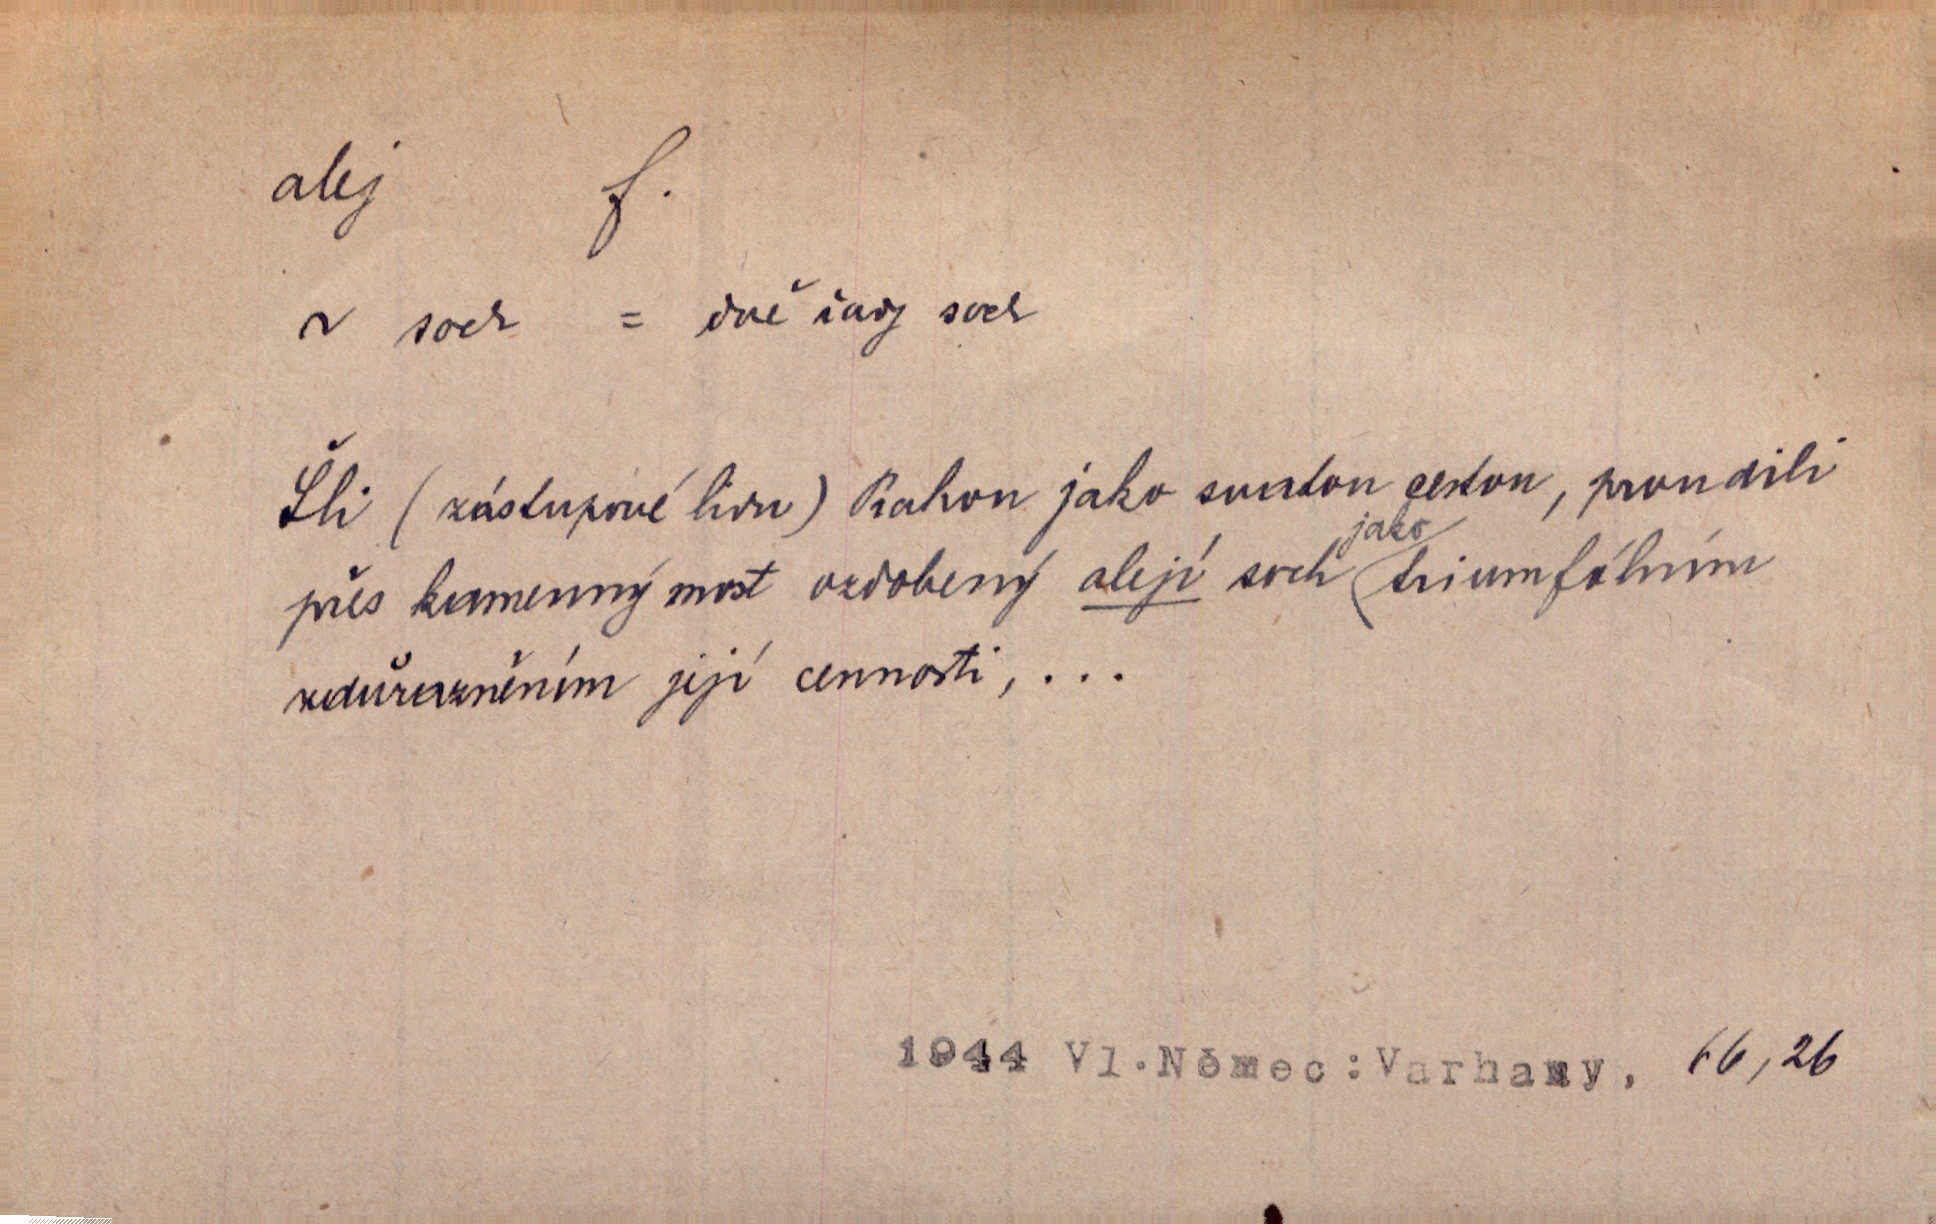 alej f.
~ soch = dvě řady soch
Šli (zástupové lidu) Prahou jako svatou cestou, proudili
přes kamenný most ozdobený alejí soch jako triumfálním
zdůrazněním její cennosti, . . .
1944 Vl.Němec:Varhany, 66, 26